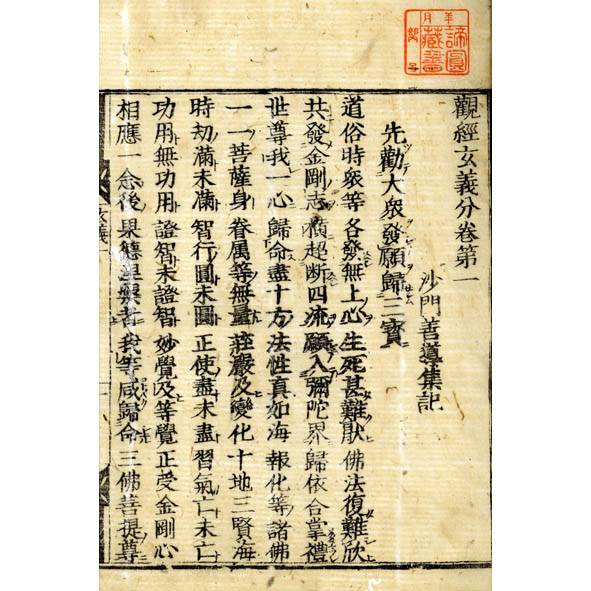 觀經玄義分卷第一
沙門善導集記
先勸大衆發願歸三寶
道俗時衆等 各發無上心 生死甚難猒 佛法復難欣
共發金剛志 橫超斷四流 願入彌陀界 歸依合掌禮
世尊我一心 歸命盡十方 法性眞如海 報化等諸佛
一一菩薩身 眷属等無量 莊嚴及變化 十地三賢海
時劫滿未滿 智行圓未圓 正使盡未盡 習氣亡未亡
功用無功用 證智未證智 妙覺及等覺 正受金剛心
相應一念後 果德涅槃者 我等咸歸命 三佛菩提尊
玄義一